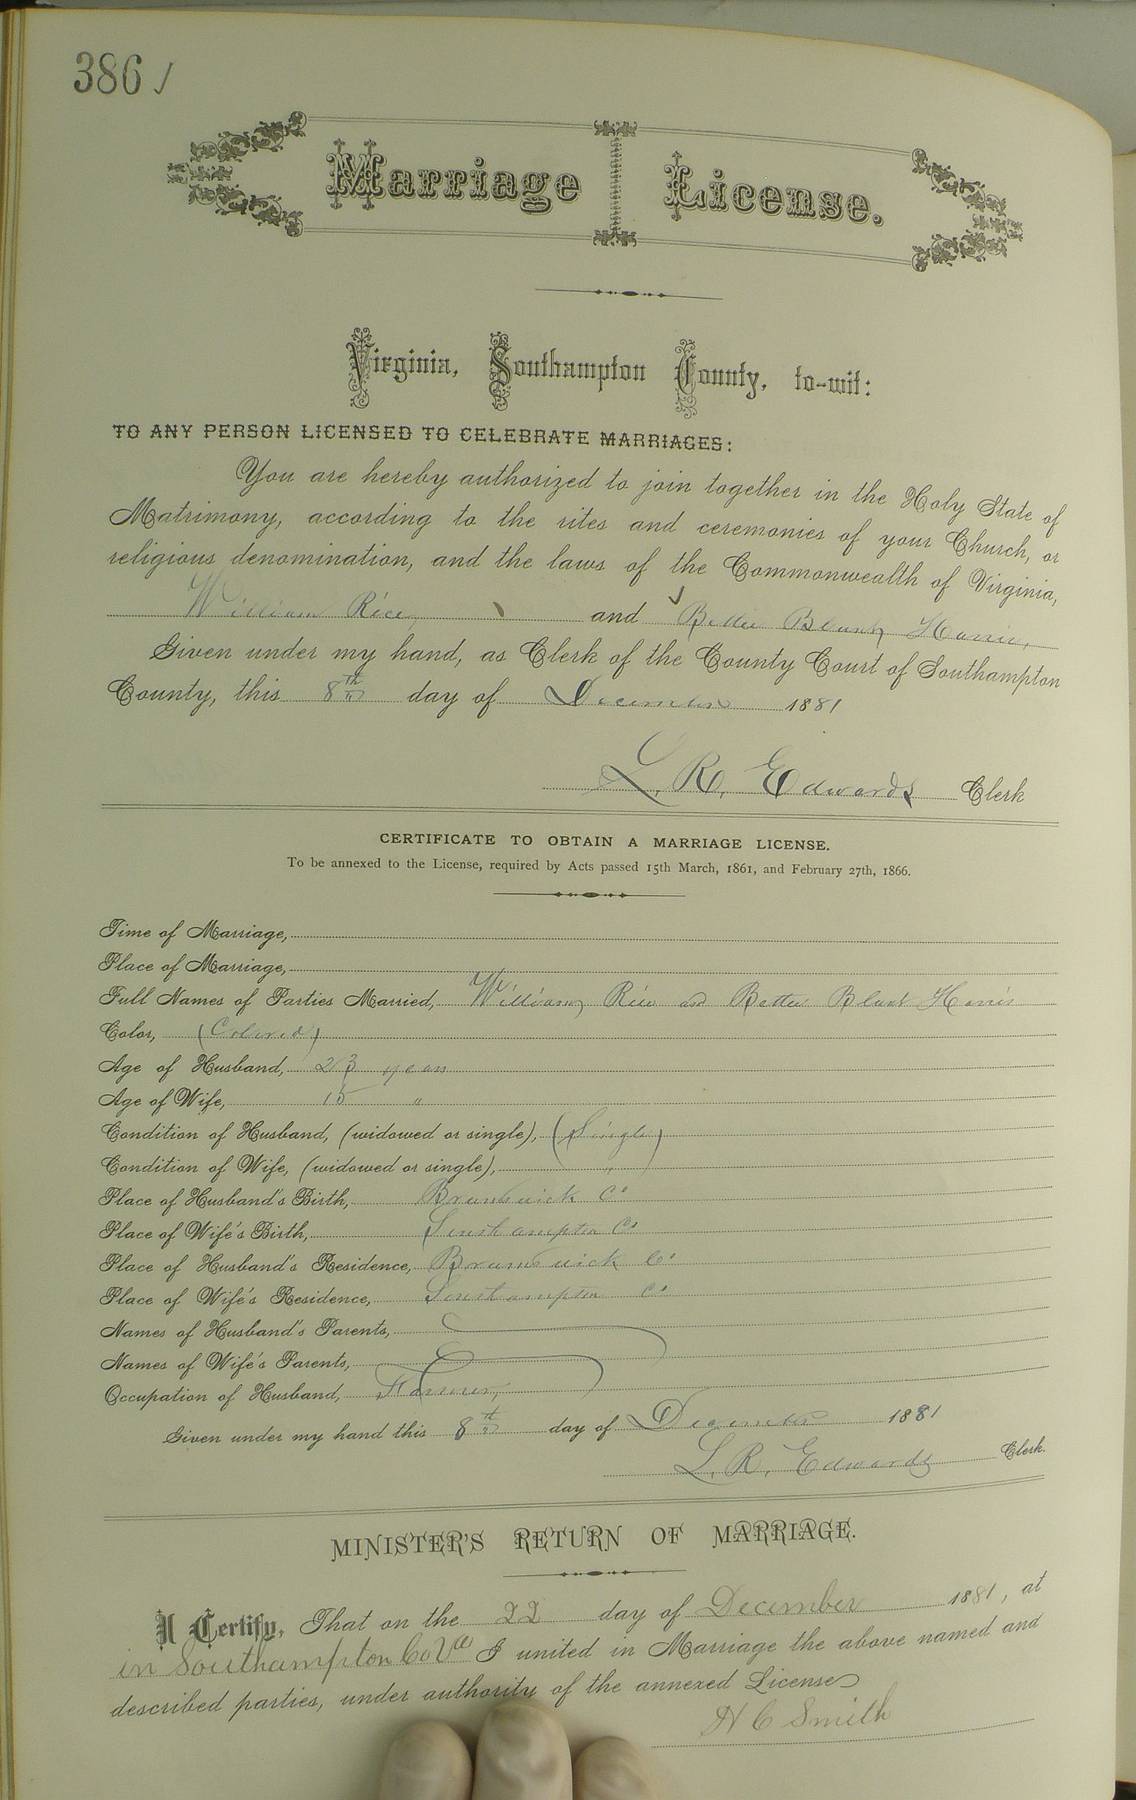 386 /
Marriage License.
Virginia, Southampton County, to-wit:
TO ANY PERSON LICENSED TO CELEBRATE MARRIAGES:
You are hereby authorized to join together in the Holy State of
Matrimony, according to the rites and ceremonies of your Church, or
religious denomination, and the laws of the Commonwealth of Virginia,
William Rice, and Bettie Blunt Harris,
Given under my hand, as Clerk of the County Court of Southampton
County, this 8th day of December 1881
L. R. Edwards Clerk
CERTIFICATE TO OBTAIN A MARRIAGE LICENSE.
To be annexed to the License, required by Acts passed 15th March, 1861, and February 27th, 1866.
Time of Marriage,
Place of Marriage,
Full Names of Parties Married, William Rice and Bettie Blunt Harris
Color, (Colored)
Age of Husband, 23 years
Age of Wife, 15 "
Condition of Husband, (widowed or single), (Single)
Condition of Wife, (widowed or single), "
Place of Husband's Birth, Brunswick Co
Place of Wife's Birth, Southampton Co
Place of Husband's Residence, Brunswick Co
Place of Wife's Residence, Southampton Co
Names of Husband's Parents,
Names of Wife's Parents,
Occupation of Husband, Farmer,
Given under my hand this 8th day of December 1881
L. R. Edwards Clerk.
MINISTER'S RETURN OF MARRIAGE.
I Certify, That on the 22 day of December 1881, at
in Southampton Co Va I united in Marriage the above named and
described parties, under authority of the annexed License
H C Smith